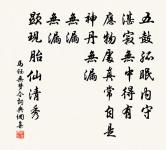 五鼓孤眠內守
湛寂無中得有
應物處真常自是
神丹無漏
無漏
無漏
顯現胎仙清秀
馬鈺無夢令詞典網書